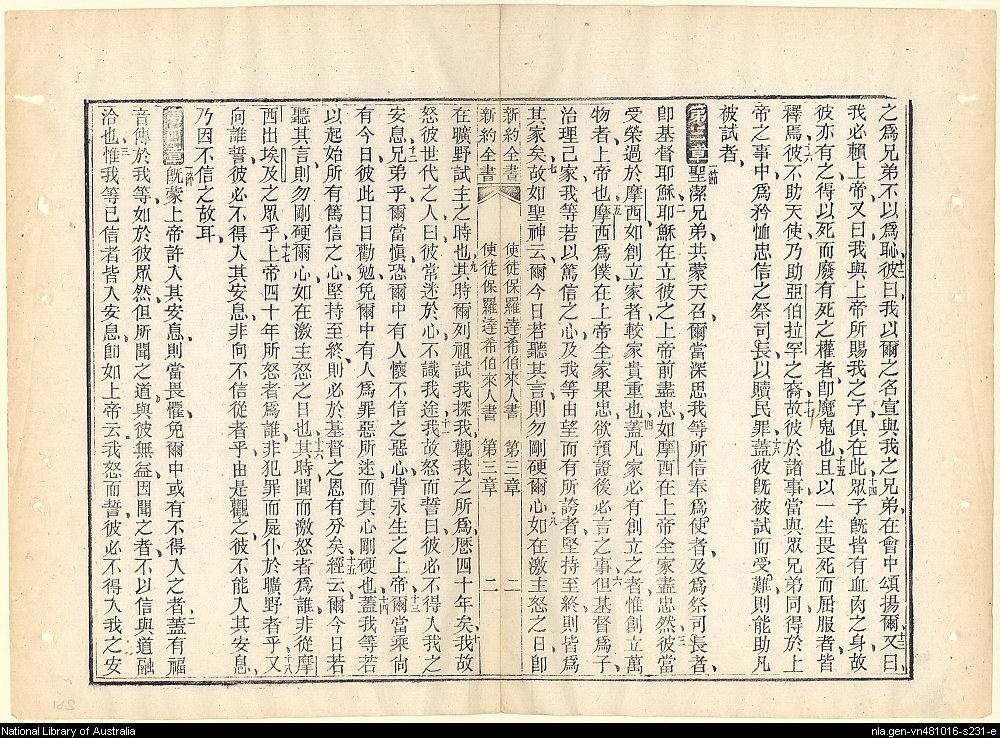 之爲兄弟不以爲恥十二彼曰我以爾之名宣與我之兄弟在會中頌揚爾十三又曰
我必賴上帝又曰我與上帝所賜我之子俱在此十四眾子旣皆有血肉之身故
彼亦有之得以死而廢有死之權者卽魔鬼也十五且以一生畏死而屈服者皆
釋焉十六彼不助天使乃助亞伯拉罕之裔十七故彼於諸事當與眾兄弟同得於上
帝之事中爲矜恤忠信之祭司長以贖民罪十八蓋彼旣被試而受難則能助凡
被試者
第三章一節聖潔兄弟共蒙天召爾當深思我等所信奉爲使者及爲祭司長者
卽基督耶穌二耶穌在立彼之上帝前盡忠如摩西在上帝全家盡忠三然彼當
受榮過於摩西如創立家者較家貴重也四蓋凡家必有創立之者惟創立萬
物者上帝也五摩西爲僕在上帝全家果忠欲預證後必言之事六但基督爲子
治理己家我等若以篤信之心及我等由望而有所誇者堅持至終則皆爲
其家矣七故如聖神云爾今日若聽其言八則勿剛硬爾心如在激主怒之日卽
新約全書 使徒保羅達希伯來人書 第三章 二
新約全書 使徒保羅達希伯來人書 第三章 二
在曠野試主之時也九其時爾列祖試我探我觀我之所爲歷四十年矣十我故
怒彼世代之人曰彼常迷於心不識我途十一我故怒而誓曰彼必不得入我之
安息十二兄弟乎爾當愼恐爾中有人懷不信之惡心背永生之上帝十三爾當乘尙
有今日彼此日日勸勉免爾中有人爲罪惡所迷而其心剛硬也十四蓋我等若
以起始所有篤信之心堅持至終則必於基督之恩有分矣十五經云爾今日若
聽其言則勿剛硬爾心如在激主怒之日也十六其時聞而激怒者爲誰非從摩
西出埃及之眾乎十七上帝四十年所怒者爲誰非犯罪而屍仆於曠野者乎十八又
向誰誓彼必不得入其安息非向不信從者乎由是觀之彼不能入其安息
乃因不信之故耳
第四章一節旣蒙上帝許入其安息則當畏懼免爾中或有不得入之者二蓋有福
音傳於我等如於彼眾然但所聞之道與彼無益因聞之者不以信與道融
洽也三惟我等已信者皆入安息卽如上帝云我怒而誓彼必不得入我之安
National Library of Australia
nla.gen-vn481016-s231-e